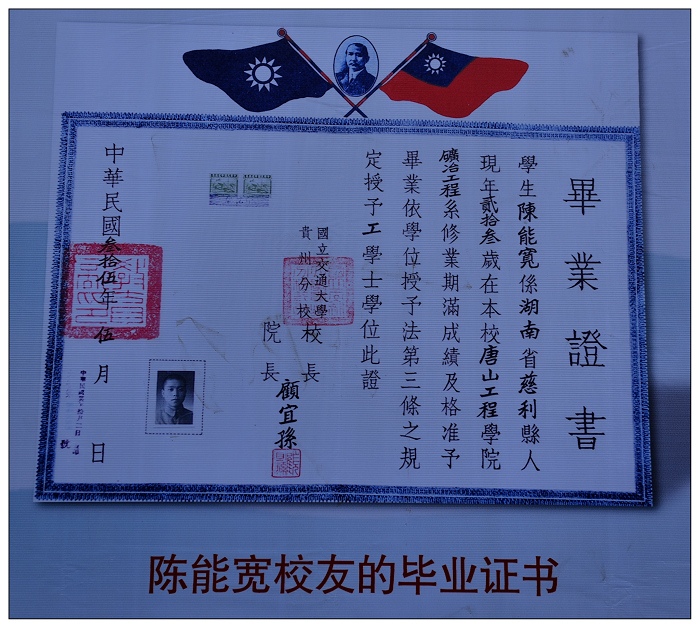 畢業證書
學生陳能寬係湖南省慈利縣人
現年貳拾叁歲在本校唐山工程學院
礦冶工程系修業期滿成績及格准予
畢業依學位授予法第三條之規
定授予工學士學位此證
國立交通大學
貴州分校
校長
院長
顧宜孫
中華民國叁拾伍年伍月 日
陈能宽校友的毕业证书